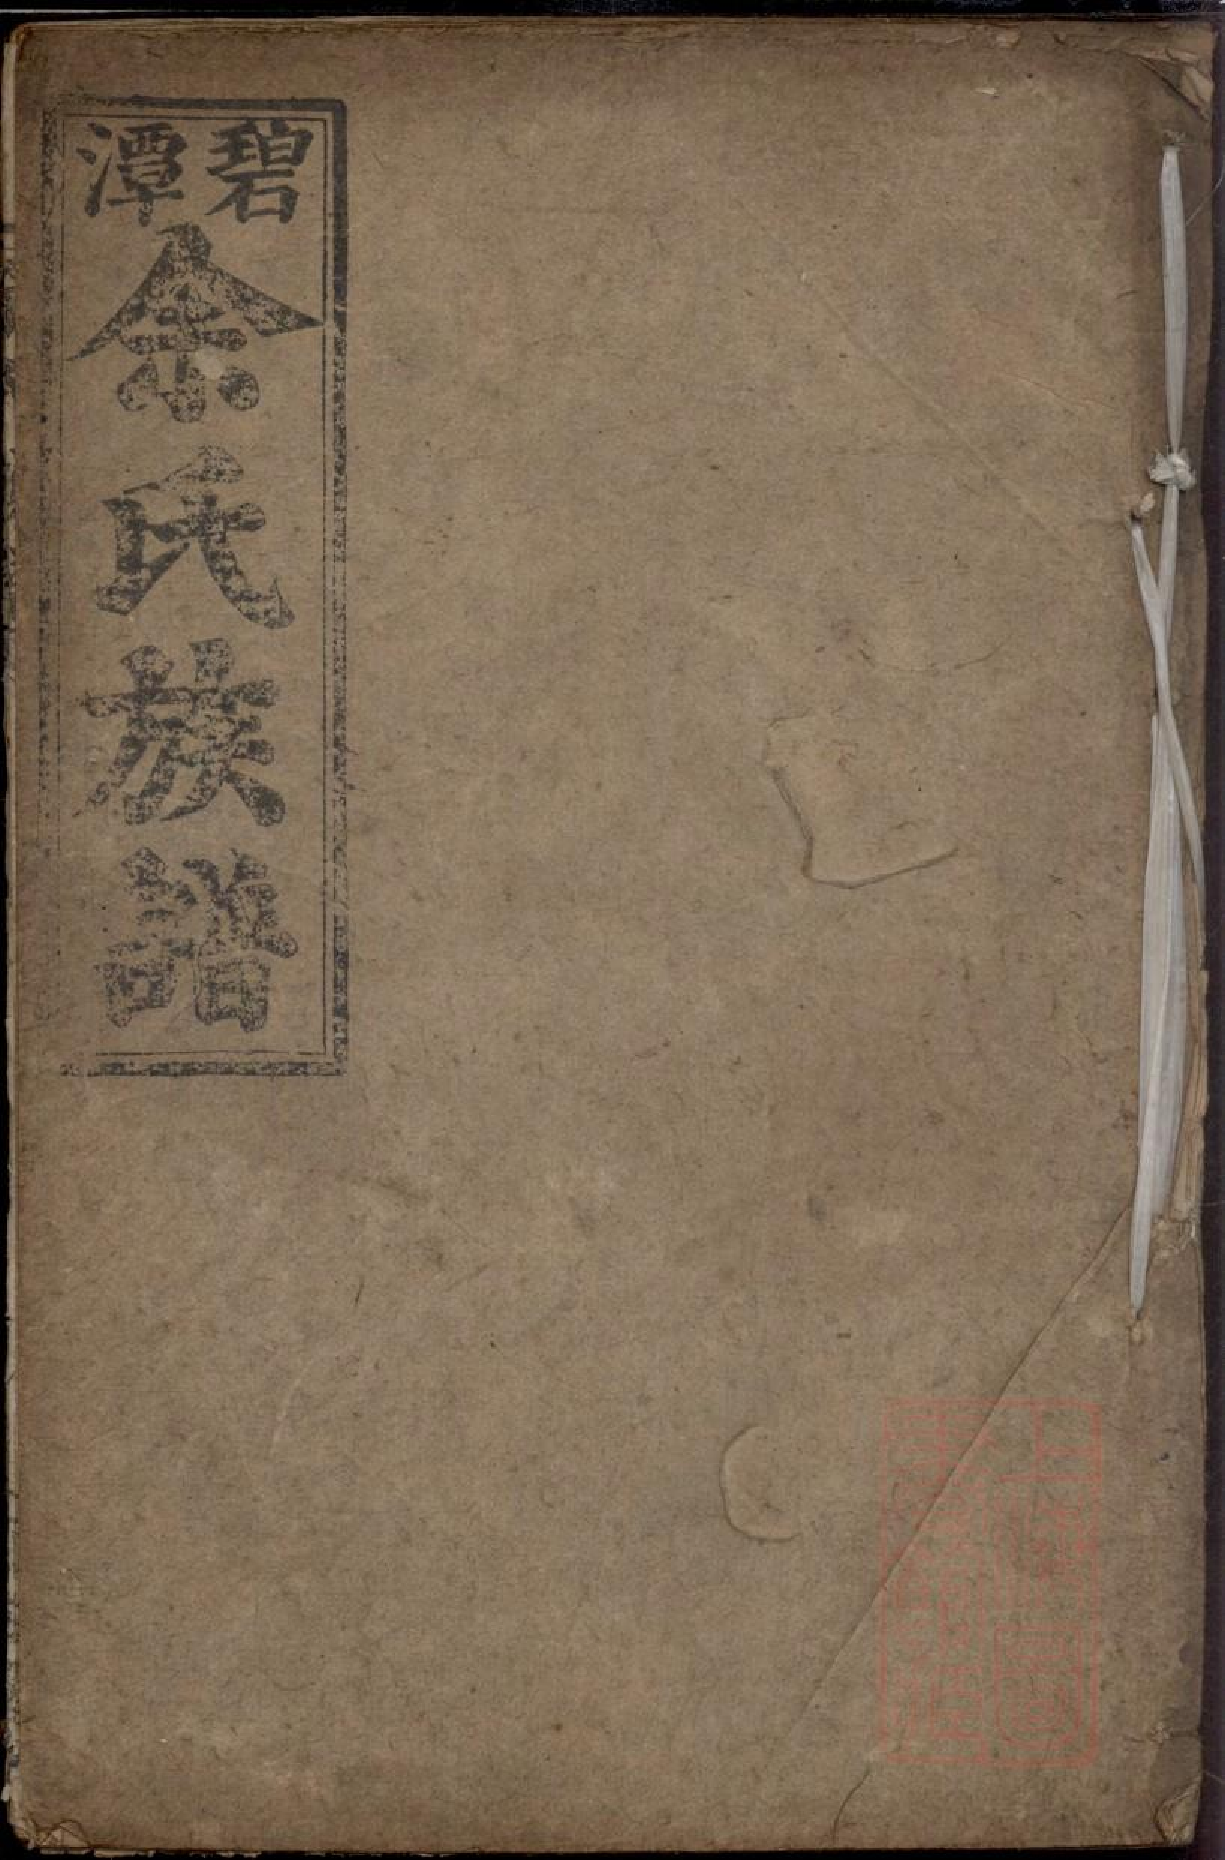 碧潭
余氏族譜